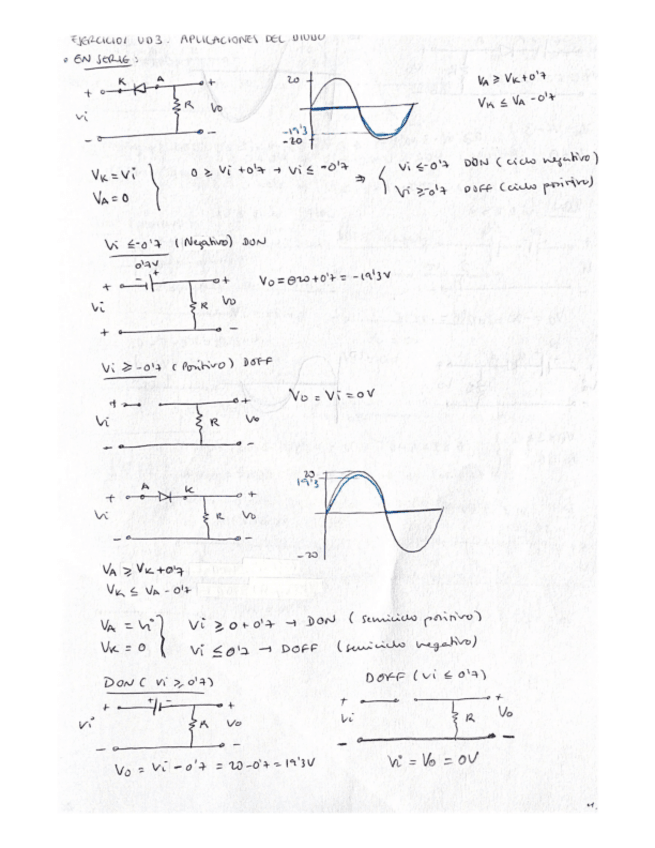 EJERCICIOS UD3. APLICACIONES DEL DIODO
• EN SERIE:
K A
+ +
Vi R Vo
- -
20
-19'3
-20
VA ≥ VK+0'7
VK ≤ VA -0'7
VK = Vi
VA = 0
0 ≥ Vi +0'7 → Vi ≤ -0'7 ⇒
Vi ≤ -0'7 DON (ciclo negativo)
Vi ≥ -0'7 DOFF (ciclo positivo)
Vi ≤ -0'7 (Negativo) DON
0'7V
- +
+ +
Vi R Vo
+ -
Vo = ⊖20+0'7 = -19'3V
Vi ≥ -0'7 (Positivo) DOFF
+ +
Vi R Vo
- -
Vo = Vi = 0V
A K
+ +
Vi R Vo
- -
20
19'3
-20
VA ≥ VK +0'7
VK ≤ VA -0'7
VA = Vi
VK = 0
Vi ≥ 0 + 0'7 → DON (semiciclo positivo)
Vi ≤ 0'7 → DOFF (semiciclo negativo)
DON (Vi ≥ 0'7)
+ -
+ +
Vi R Vo
- -
Vo = Vi - 0'7 = 20 -0'7 = 19'3V
DOFF (Vi ≤ 0'7)
+ +
Vi R Vo
- -
Vi = Vo = 0V